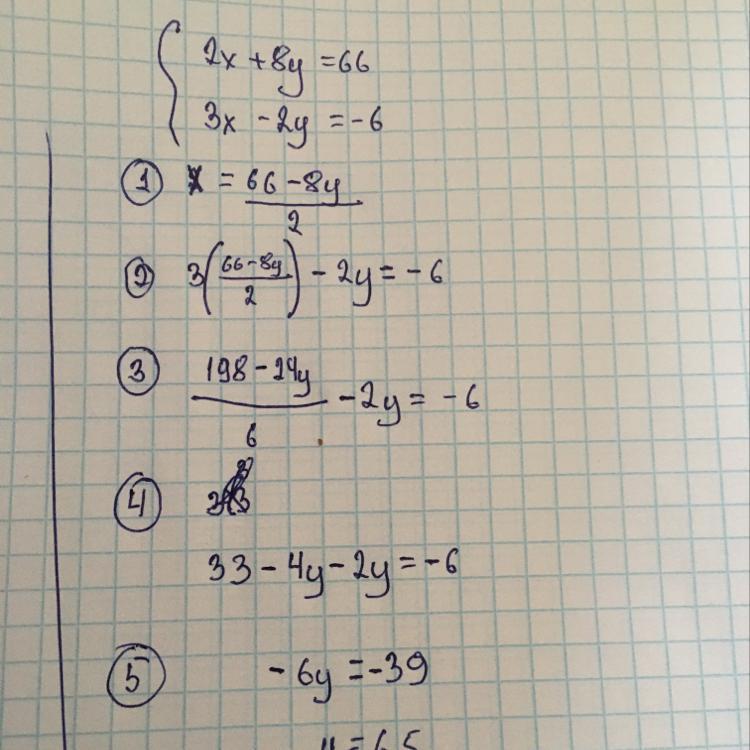 2x + 8y = 66
3x - 2y = -6
① x = (66 - 8y)/2
② 3((66 - 8y)/2) - 2y = -6
③ (198 - 24y)/6 - 2y = -6
④
33 - 4y - 2y = -6
⑤ - 6y = -39
y = 6.5